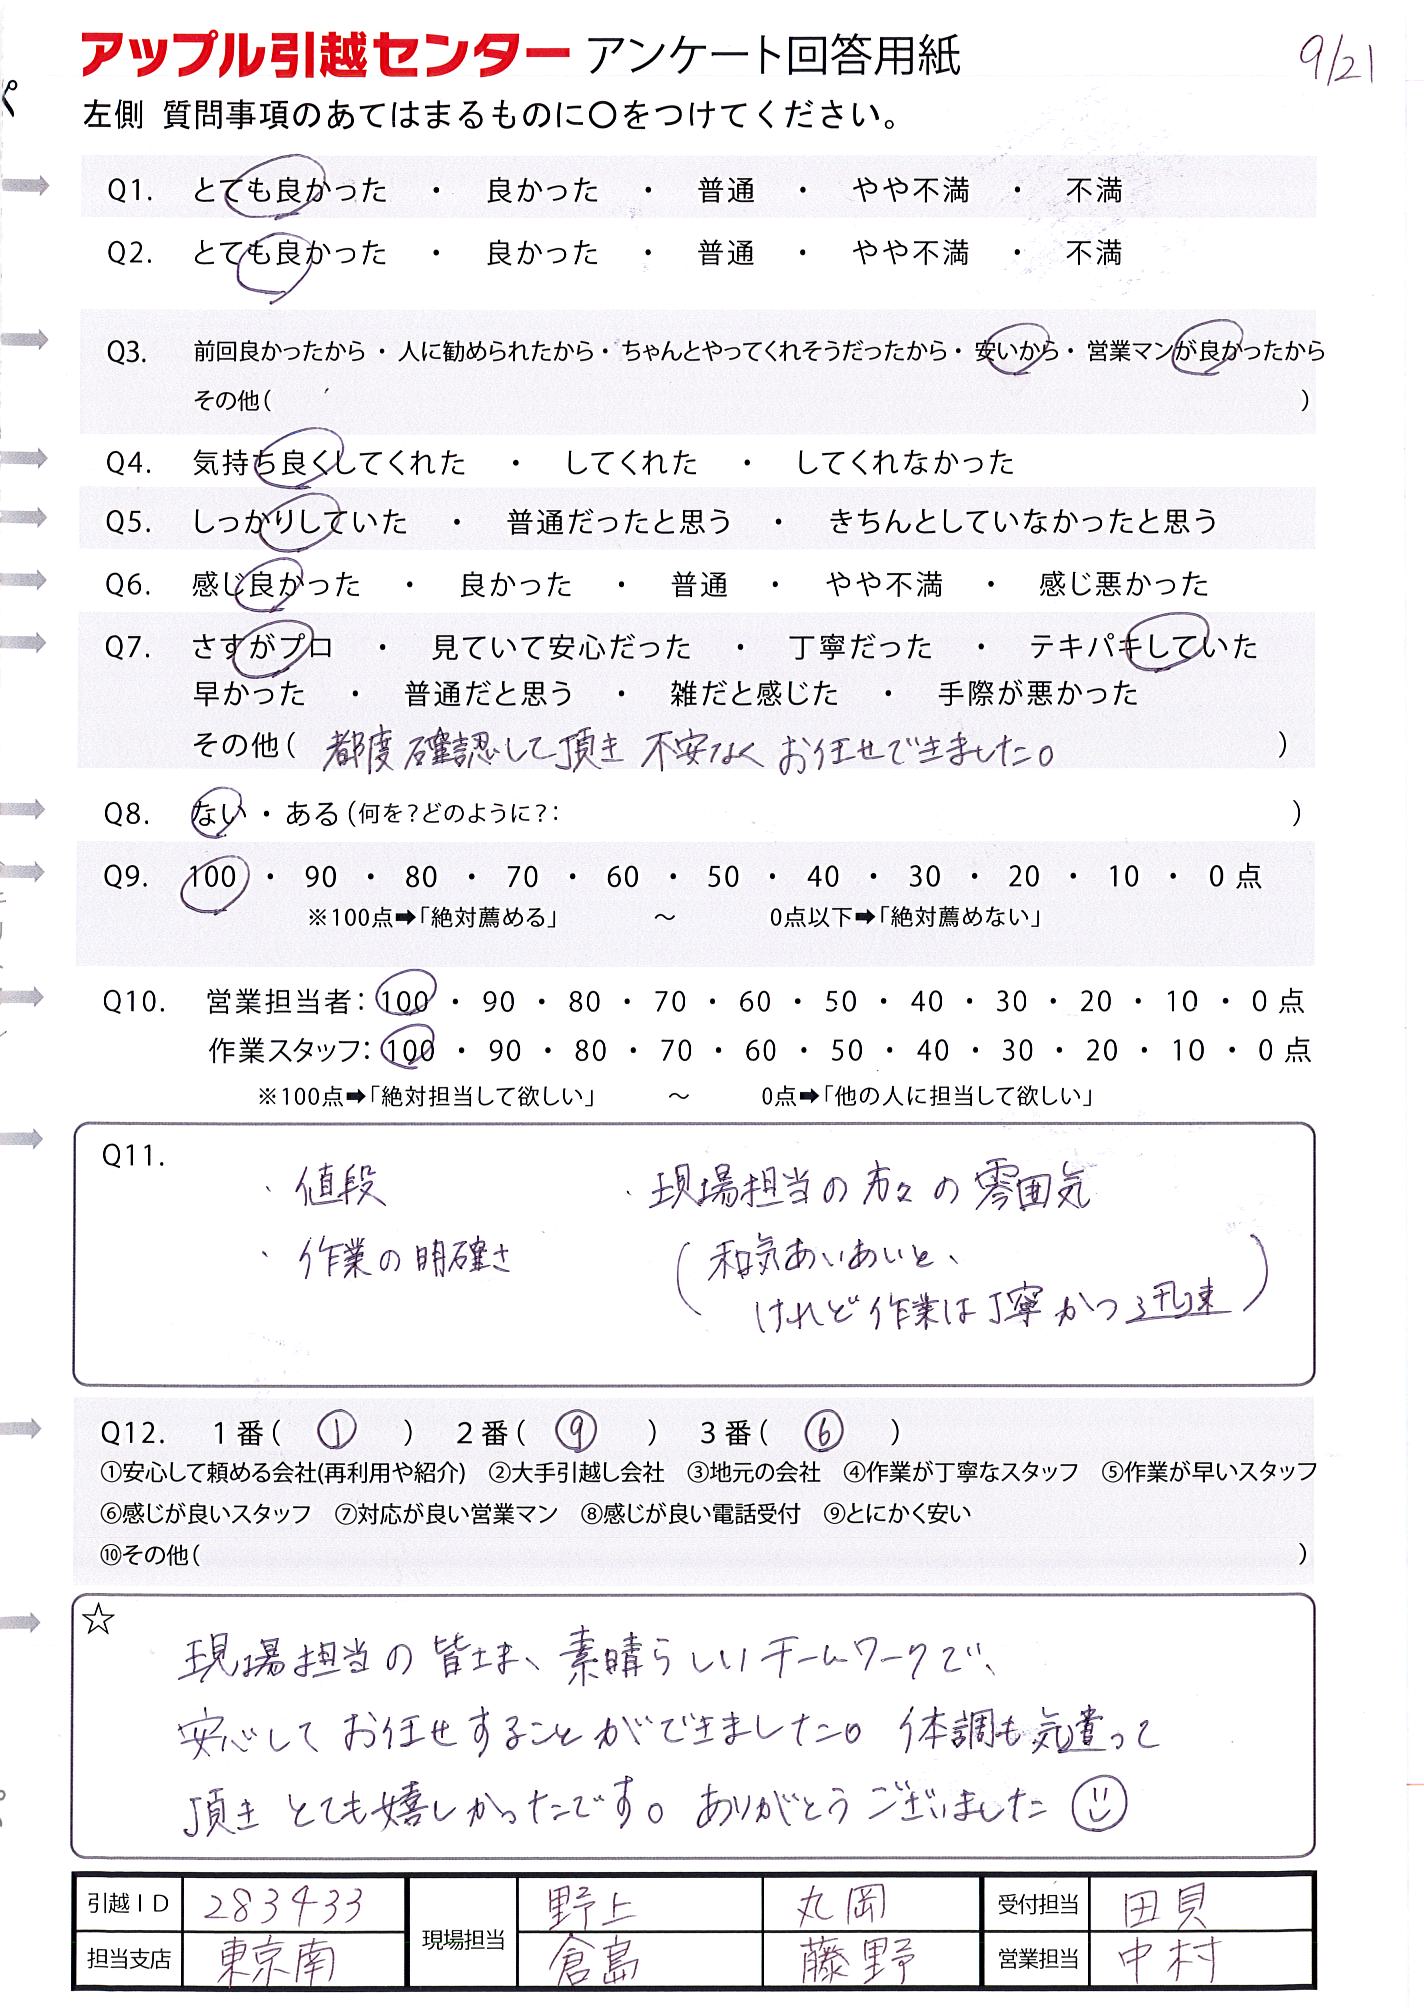 アップル引越センター アンケート回答用紙
9/21
左側 質問事項のあてはまるものに〇をつけてください。
Q1. とても良かった ・ 良かった ・ 普通 ・ やや不満 ・ 不満
Q2. とても良かった ・ 良かった ・ 普通 ・ やや不満 ・ 不満
Q3. 前回良かったから・人に勧められたから・ちゃんとやってくれそうだったから・安いから・営業マンが良かったから
その他( )
Q4. 気持ち良くしてくれた ・ してくれた ・ してくれなかった
Q5. しっかりしていた ・ 普通だったと思う ・ きちんとしていなかったと思う
Q6. 感じ良かった ・ 良かった ・ 普通 ・ やや不満 ・ 感じ悪かった
Q7. さすがプロ ・ 見ていて安心だった ・ 丁寧だった ・ テキパキしていた
早かった ・ 普通だと思う ・ 雑だと感じた ・ 手際が悪かった
その他( 都度確認して頂き 不安なく お任せできました。 )
Q8. ない・ある(何を?どのように?: )
Q9. 100 ・ 90 ・ 80 ・ 70 ・ 60 ・ 50 ・ 40 ・ 30 ・ 20 ・ 10 ・ 0点
※100点➡「絶対薦める」 ～ 0点以下➡「絶対薦めない」
Q10. 営業担当者: 100 ・ 90 ・ 80 ・ 70 ・ 60 ・ 50 ・ 40 ・ 30 ・ 20 ・ 10 ・ 0点
作業スタッフ: 100 ・ 90 ・ 80 ・ 70 ・ 60 ・ 50 ・ 40 ・ 30 ・ 20 ・ 10 ・ 0点
※100点➡「絶対担当して欲しい」 ～ 0点➡「他の人に担当して欲しい」
Q11.
・値段 ・現場担当の方々の雰囲気
・作業の明確さ (和気あいあいと、
けれど作業は丁寧かつ迅速)
Q12. 1番( ① ) 2番( ⑨ ) 3番( ⑥ )
①安心して頼める会社(再利用や紹介) ②大手引越し会社 ③地元の会社 ④作業が丁寧なスタッフ ⑤作業が早いスタッフ
⑥感じが良いスタッフ ⑦対応が良い営業マン ⑧感じが良い電話受付 ⑨とにかく安い
⑩その他( )
☆
現場担当の皆さま、素晴らしいチームワークで、
安心して お任せすることができました。体調も気遣って
頂き とても嬉しかったです。ありがとうございました
引越ID 283433 現場担当 野上 丸岡 受付担当 田貝
担当支店 東京南 倉島 藤野 営業担当 中村